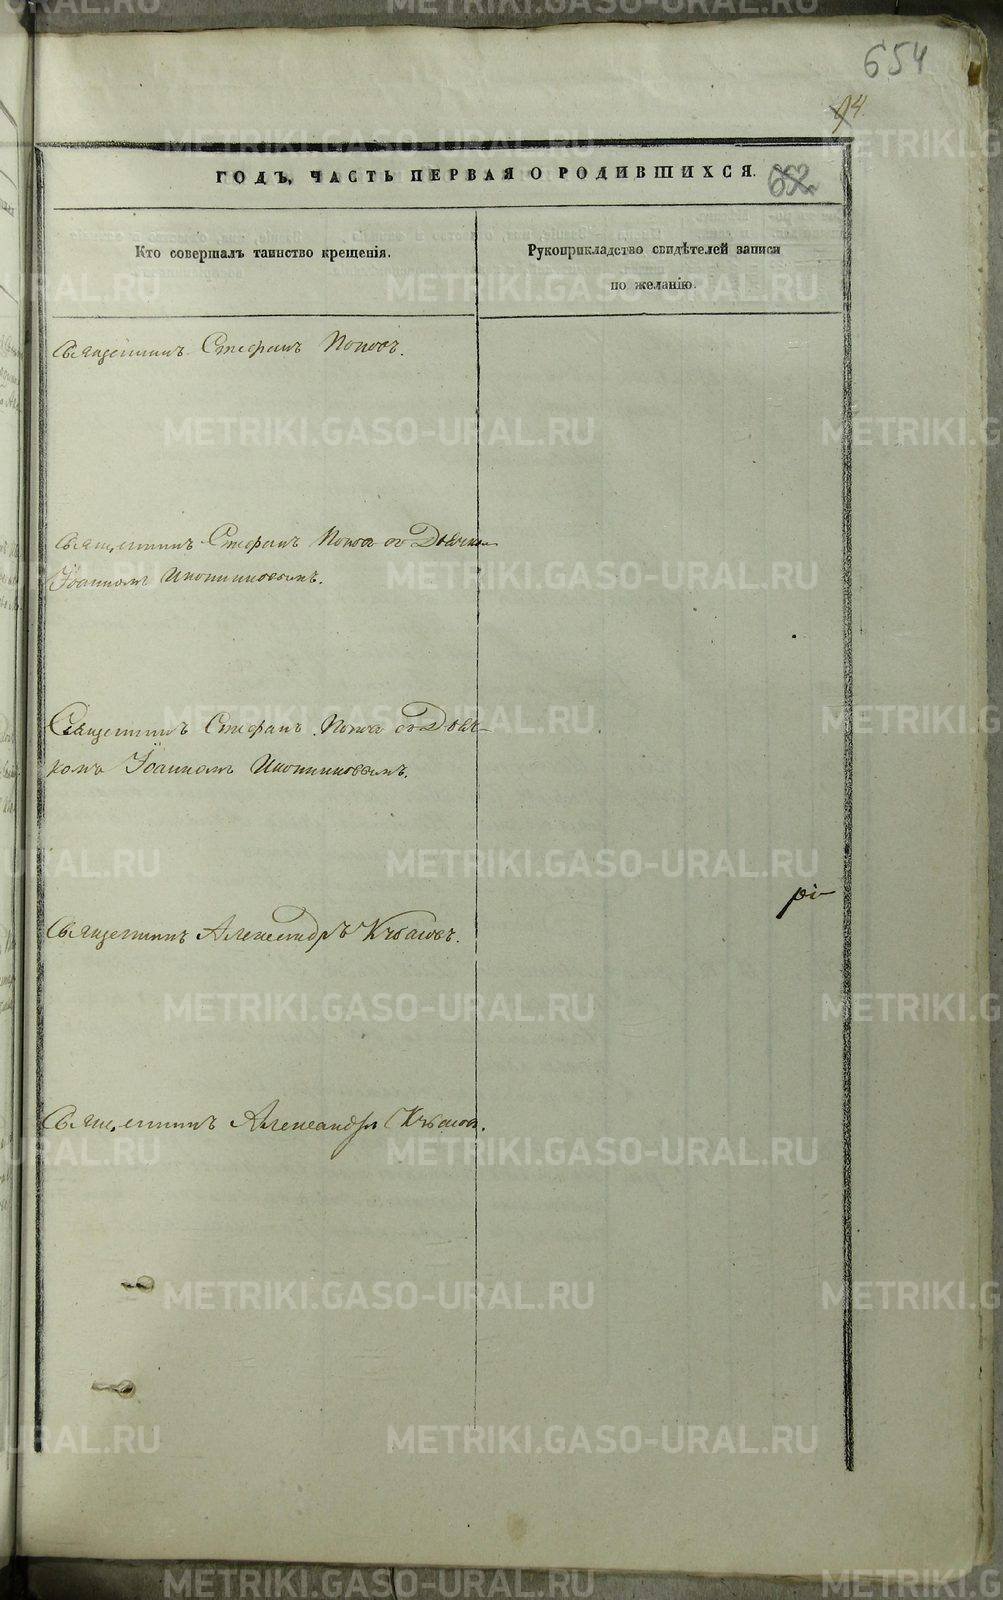 654
14
ГОДЪ, ЧАСТЬ ПЕРВАЯ О РОДИВШИХСЯ. 652
Кто совершалъ таинство крещенія.
Рукоприкладство свидѣтелей записи
по желанію.
Священникъ Стефанъ Поповъ.
Священникъ Стефанъ Попов со Дьячком
Іоанном Иконниковымъ.
Священникъ Стефанъ Попов со Дьяч-
комъ Іоанномъ Иконниковымъ.
Священникъ Александръ
Священникъ Александръ
METRIKI.GASO-URAL.RU